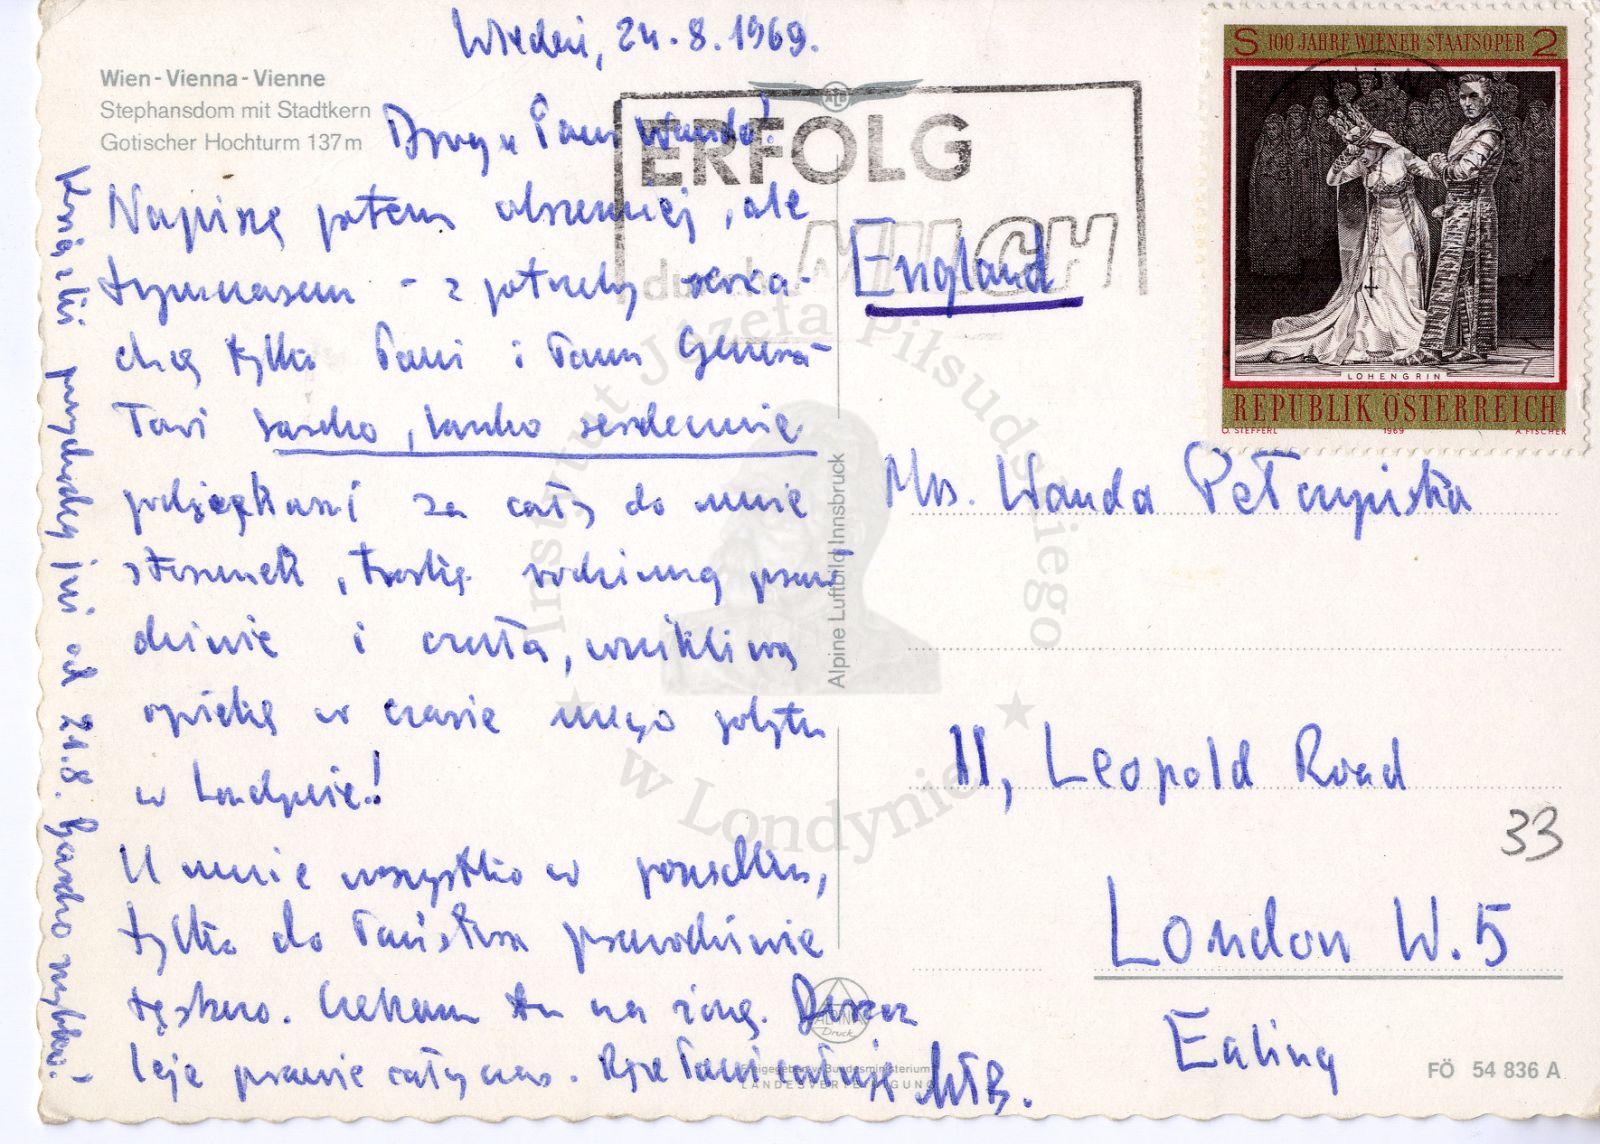 Wiedeń, 24.8.1969.
Wien-Vienna-Vienne
Stephansdom mit Stadtkern
Gotischer Hochturm 137 m
Droga Pani Wando!
Napiszę potem obszerniej, ale
tymczasem - z potrzeby serca -
chcę tylko Pani i Panu Generałowi
bardzo, bardzo serdecznie
podziękować za cały do mnie
stosunek, troskę rodzinną prawdziwie
i czułą, wnikliwą
opiekę w czasie mego pobytu
w Londynie!
U mnie wszystko w porządku,
tylko do Państwa prawdziwie
tęskno. Czekam tu na żonę. Deszcz
leje prawie cały czas. Ręce Pani całuję
Książki przychodzą już od 21.8. Bardzo szybko.
ERFOLG
durch MILCH
S 100 JAHRE WIENER STAATSOPER 2
LOHENGRIN
REPUBLIK ÖSTERREICH
O. STEFFERL 1969 A. FISCHER
England
Mrs. Wanda Pełczyńska
11, Leopold Road
London W.5
Ealing
33
Alpine Luftbild Innsbruck
ALPINA
Druck
Freigegeben v. Bundesministerium f.
LANDESVERTEIDIGUNG
FÖ 54 836 A
Instytut Józefa Piłsudskiego
w Londynie